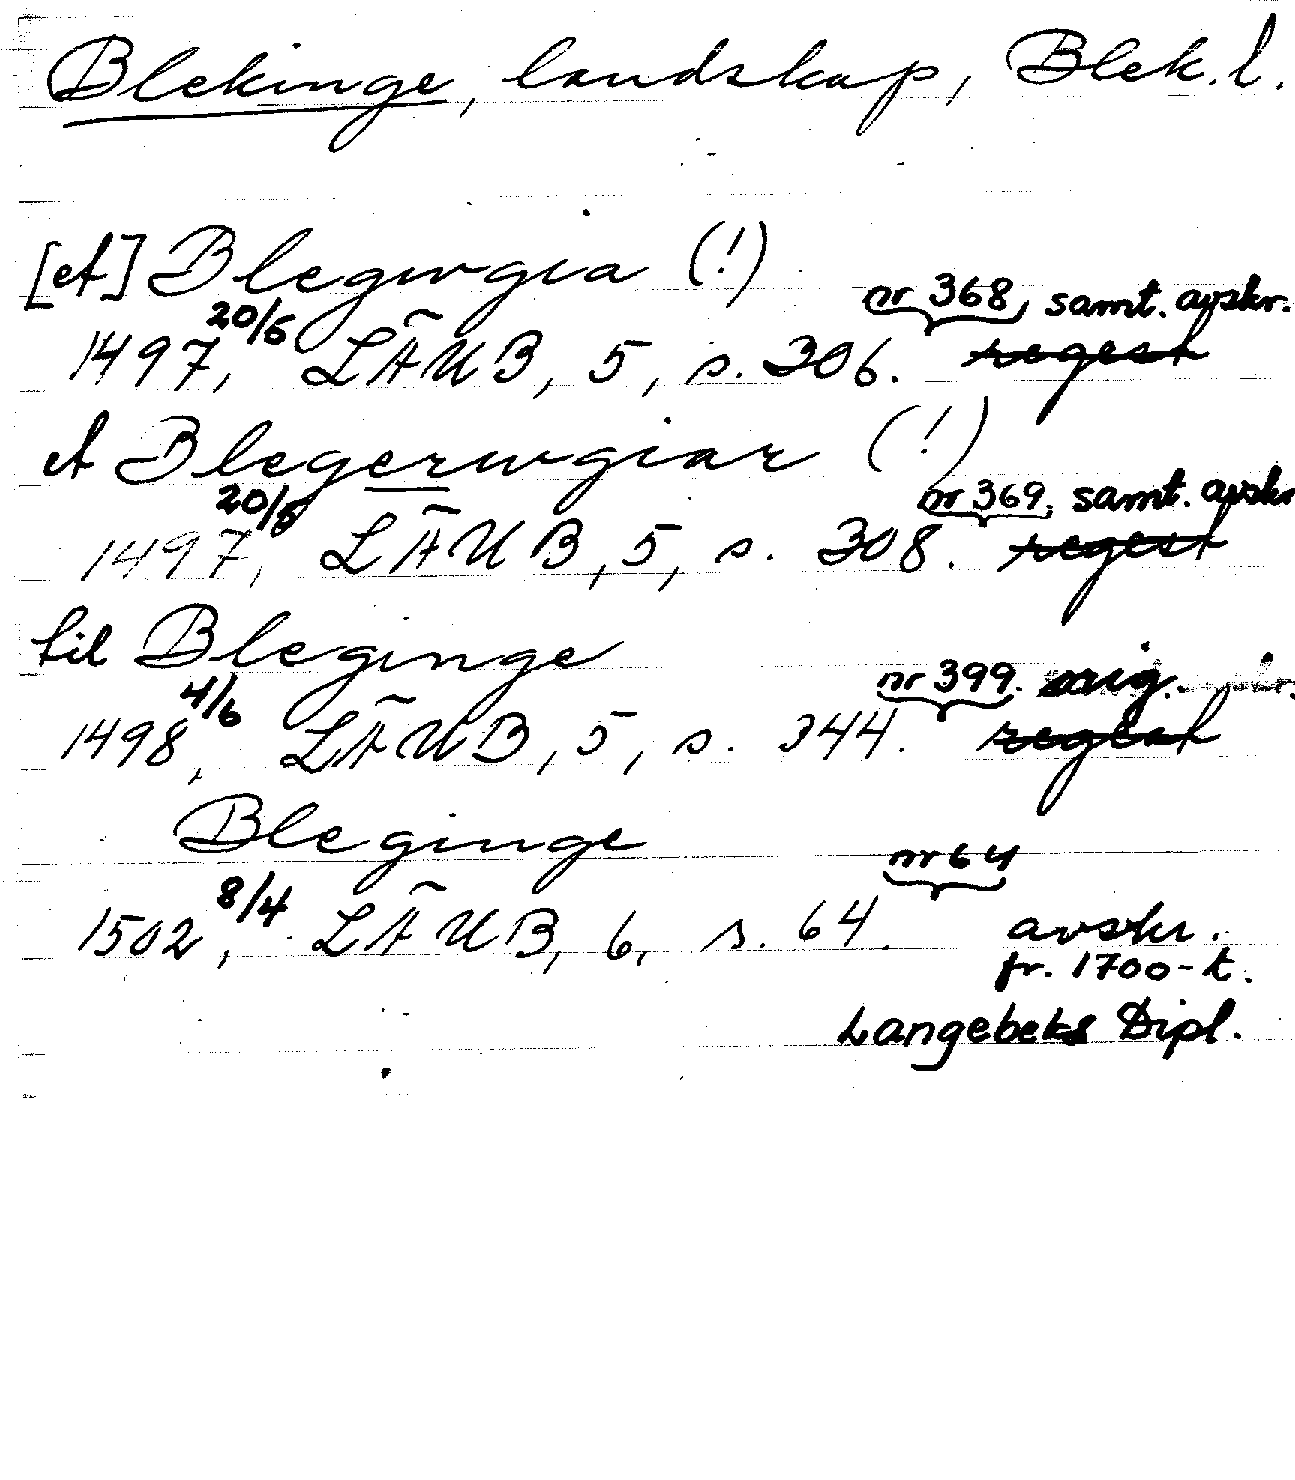 Blekinge, landskap, Blek. l.
[et] Blegingia (!)
1497, 20/5 LÄUB, 5, s. 306. nr 368, samt. avskr. regest
et Blegeringiar (!)
1497, 20/5 LÄUB, 5, s. 308. nr 369. samt. avskr regest
til Bleginge
1498, 4/6 LÄUB, 5, s. 344. nr 399. orig. regest
Bleginge
1502, 8/4 LÄUB, 6, s. 64. nr 64
avskr.
fr. 1700-t.
Langebeks Dipl.